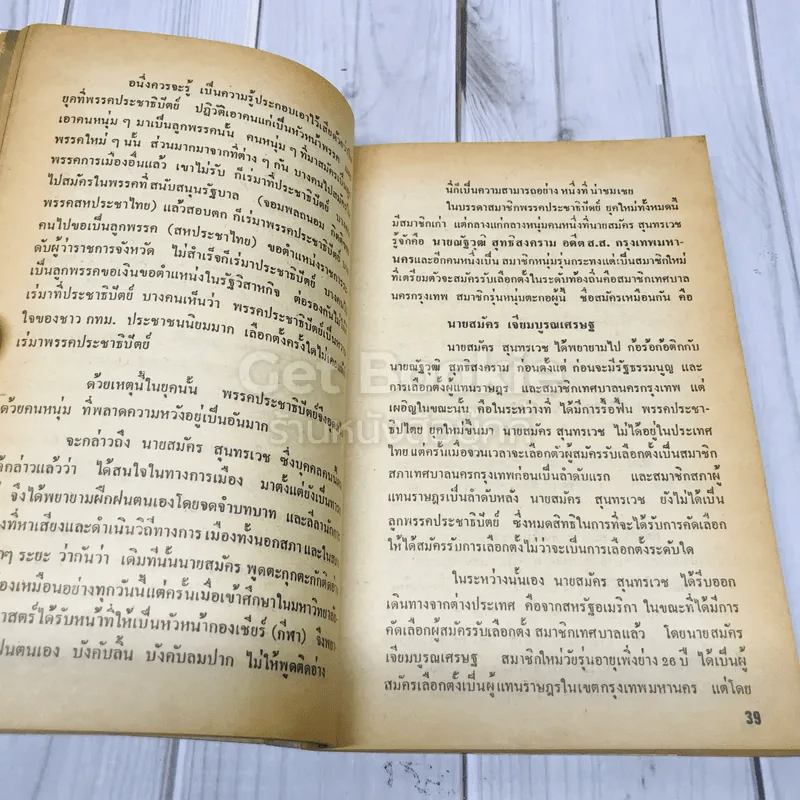 อนึ่งควรจะรู้ เป็นความรู้ประกอบเอาไว้เสียด้วยว่า
ยุคที่พรรคประชาธิปัตย์ ปฏิวัติเอาคนแก่เป็นหัวหน้าพรรค
เอาคนหนุ่ม ๆ มาเป็นลูกพรรคนั้น คนหนุ่ม ๆ ที่มาสมัครเป็นลูก
พรรคใหม่ ๆ นั้น ส่วนมากมาจากที่ต่าง ๆ กัน บางคนไปสมัคร
พรรคการเมืองอื่นแล้ว เขาไม่รับ ก็เร่มาที่ประชาธิปัตย์
ไปสมัครในพรรคที่สนับสนุนรัฐบาล (จอมพลถนอม กิตติขจร
พรรคสหประชาไทย) แล้วสอบตก ก็เร่มาพรรคประชาธิปัตย์
คนไปขอเป็นลูกพรรค (สหประชาไทย) ขอตำแหน่งราชการระ
ดับผู้ว่าราชการจังหวัด ไม่สำเร็จก็เร่มาประชาธิปัตย์ บางคน
เป็นลูกพรรคขอเงินขอตำแหน่งในรัฐวิสาหกิจ ต่อรองกันไม่
เร่มาที่ประชาธิปัตย์ บางคนเห็นว่า พรรคประชาธิปัตย์เป็นขวัญ
ใจของชาว กทม. ประชาชนนิยมมาก เลือกตั้งครั้งใดไม่เคย
เร่มาพรรคประชาธิปัตย์
ด้วยเหตุนี้ในยุคนั้น พรรคประชาธิปัตย์จึงอุดม
ด้วยคนหนุ่ม ที่พลาดความหวังอยู่เป็นอันมาก
จะกล่าวถึง นายสมัคร สุนทรเวช ซึ่งบุคคลคนนี้
ได้กล่าวแล้วว่า ได้สนใจในทางการเมือง มาตั้งแต่ยังเป็น
จึงได้พยายามฝึกฝนตนเองโดยจดจำบทบาท และลีลานัก
ที่หาเสียงและดำเนินวิถีทางการเมืองทั้งนอกสภา และใน
ๆ ระยะ ว่ากันว่า เดิมทีนั้นนายสมัคร พูดตะกุกตะกักติดอ่าง
เหมือนอย่างทุกวันนี้แต่ครั้นเมื่อเข้าศึกษาในมหาวิทยาลัย
ศาสตร์ได้รับหน้าที่ให้เป็นหัวหน้ากองเชียร์ (กีฬา) จึง
ฝนตนเอง บังคับลิ้น บังคับลมปาก ไม่ให้พูดติดอ่าง
นี่ก็เป็นความสามารถอย่างหนึ่งที่น่าชมเชย
ในบรรดาสมาชิกพรรคประชาธิปัตย์ ยุคใหม่ทั้งหมดนี้
มีสมาชิกเก่า แต่กลางแก่กลางหนุ่มคนหนึ่งที่นายสมัคร สุนทรเวช
รู้จักคือ นายณัฐวุฒิ สุทธิสงคราม อดีต ส.ส. กรุงเทพมหา-
นครและอีกคนหนึ่งเป็น สมาชิกหนุ่มรุ่นกระทงแต่เป็นสมาชิกใหม่
ที่เตรียมตัวจะสมัครรับเลือกตั้งในระดับท้องถิ่นคือสมาชิกเทศบาล
นครกรุงเทพ สมาชิกรุ่นหนุ่มตะกอผู้นี้ ชื่อสมัครเหมือนกัน คือ
นายสมัคร เจียมบูรณเศรษฐ
นายสมัคร สุนทรเวช ได้พยายามไป ก้อร้อก้อติกกับ
นายณัฐวุฒิ สุทธิสงคราม ก่อนตั้งแต่ ก่อนจะมีรัฐธรรมนูญ และ
การเลือกตั้งผู้แทนราษฎร และสมาชิกเทศบาลนครกรุงเทพ แต่
เผอิญในขณะนั้น คือในระหว่างที่ ได้มีการรื้อฟื้น พรรคประชา-
ธิปไตย ยุคใหม่ขึ้นมา นายสมัคร สุนทรเวช ไม่ได้อยู่ในประเทศ
ไทย แต่ครั้นเมื่อจวนเวลาจะเลือกตัวผู้สมัครรับเลือกตั้งเป็นสมาชิก
สภาเทศบาลนครกรุงเทพก่อนเป็นลำดับแรก และสมาชิกสภาผู้
แทนราษฎรเป็นลำดับหลัง นายสมัคร สุนทรเวช ยังไม่ได้เป็น
ลูกพรรคประชาธิปัตย์ ซึ่งหมดสิทธิในการที่จะได้รับการคัดเลือก
ให้ได้สมัครรับการเลือกตั้งไม่ว่าจะเป็นการเลือกตั้งระดับใด
ในระหว่างนั้นเอง นายสมัคร สุนทรเวช ได้รีบออก
เดินทางจากต่างประเทศ คือจากสหรัฐอเมริกา ในขณะที่ได้มีการ
คัดเลือกผู้สมัครรับเลือกตั้ง สมาชิกเทศบาลแล้ว โดยนายสมัคร
เจียมบูรณเศรษฐ สมาชิกใหม่วัยรุ่นอายุเพิ่งย่าง 26 ปี ได้เป็นผู้
สมัครเลือกตั้งเป็นผู้แทนราษฎรในเขตกรุงเทพมหานคร แต่โดย
39